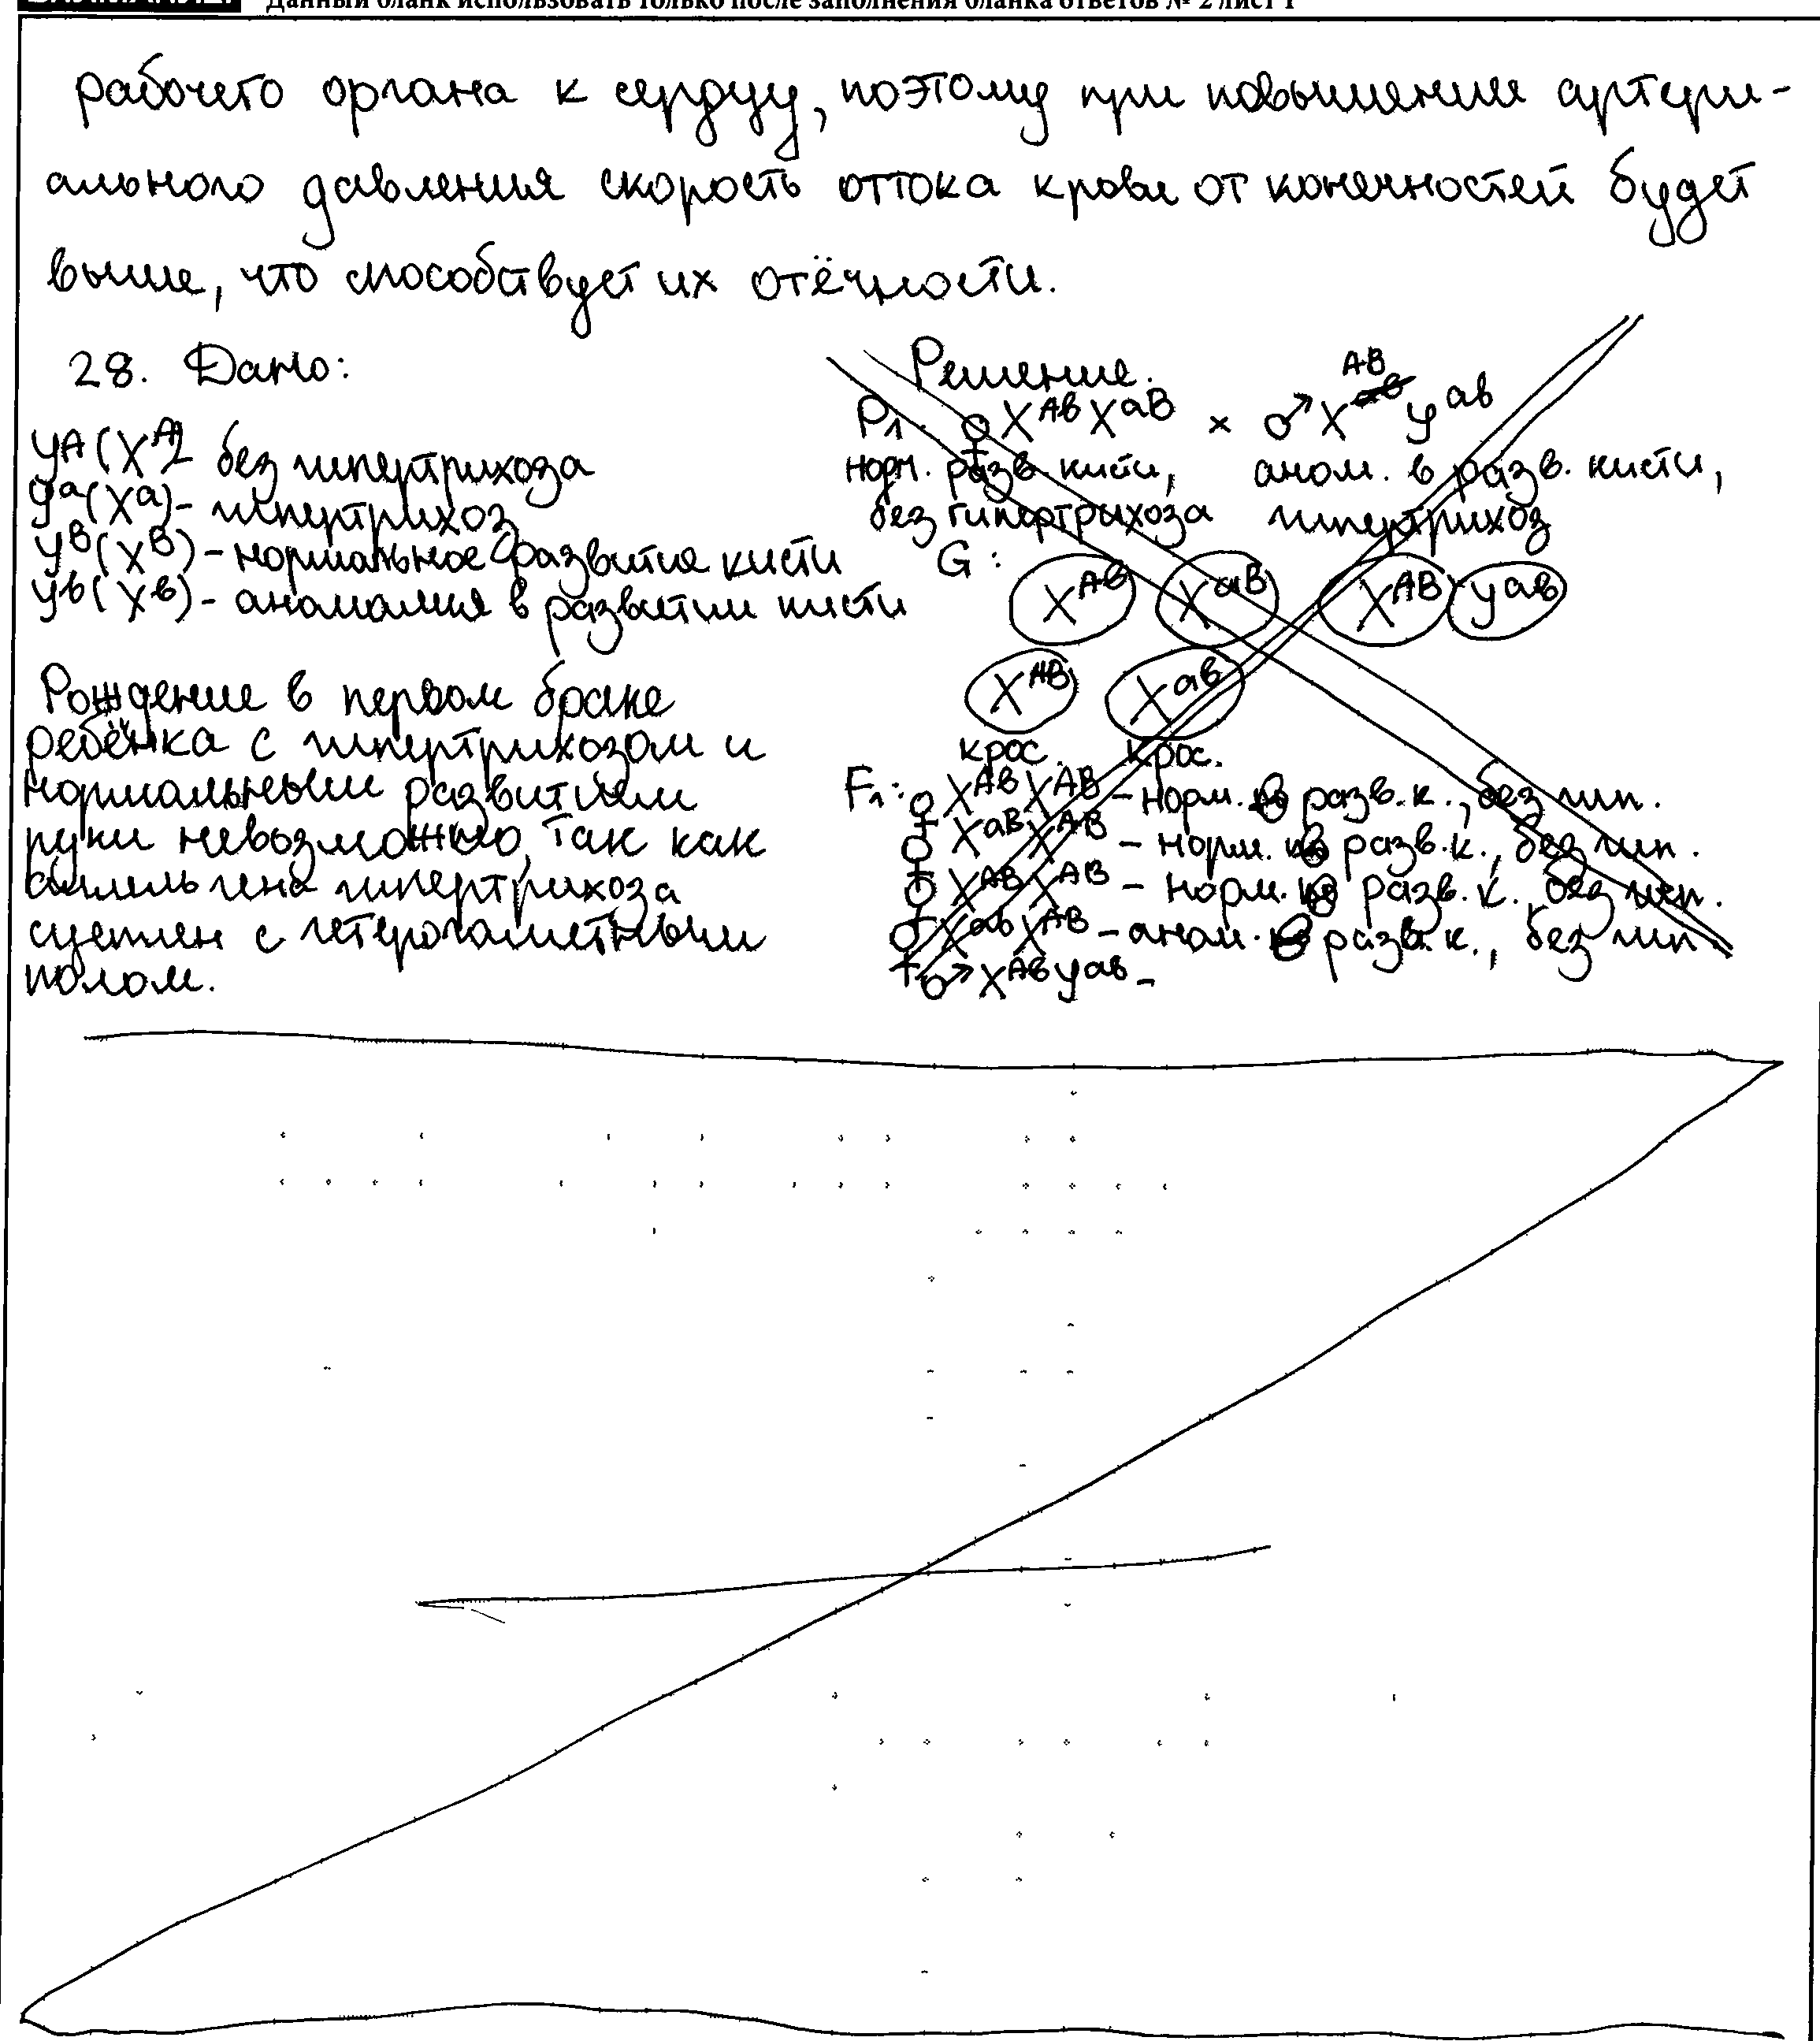 Данный бланк использовать только после заполнения бланка ответов № 2 лист 1
рабочего органа к сердцу, поэтому при повышение артери-
ального давления скорость оттока крови от конечностей будет
выше, что способствует их отёчности.
28. Дано:
yᴬ(Xᴬ) - без гипертрихоза
yᵃ(Xᵃ) - гипертрихоз
yᴮ(Xᴮ) - нормальное развитие кисти
yᵇ(Xᵇ) - аномалия в развитии кисти
Рождение в первом браке
ребёнка с гипертрихозом и
нормальным развитием
руки невозможно, так как
аллель гена гипертрихоза
сцеплен с гетерогаметным
полом.
Решение.
P₁: ♀ Xᴬᵇ Xᵃᴮ × ♂ Xᴬᴮ yᵃᵇ
норм. разв. кисти, аном. в разв. кисти,
без гипертрихоза гипертрихоз
G: Xᴬᵇ Xᵃᴮ Xᴬᴮ yᵃᵇ
Xᴬᴮ Xᵃᵇ
крос. крос.
F₁: ♀ Xᴬᵇ Xᴬᴮ - норм. разв. к., без гип.
♀ Xᵃᴮ Xᴬᴮ - норм. разв. к., без гип.
♀ Xᴬᴮ Xᴬᴮ - норм. разв. к., без гип.
♀ Xᵃᵇ Xᴬᴮ - аном. разв. к., без гип.
♂ Xᴬᵇ yᵃᵇ -